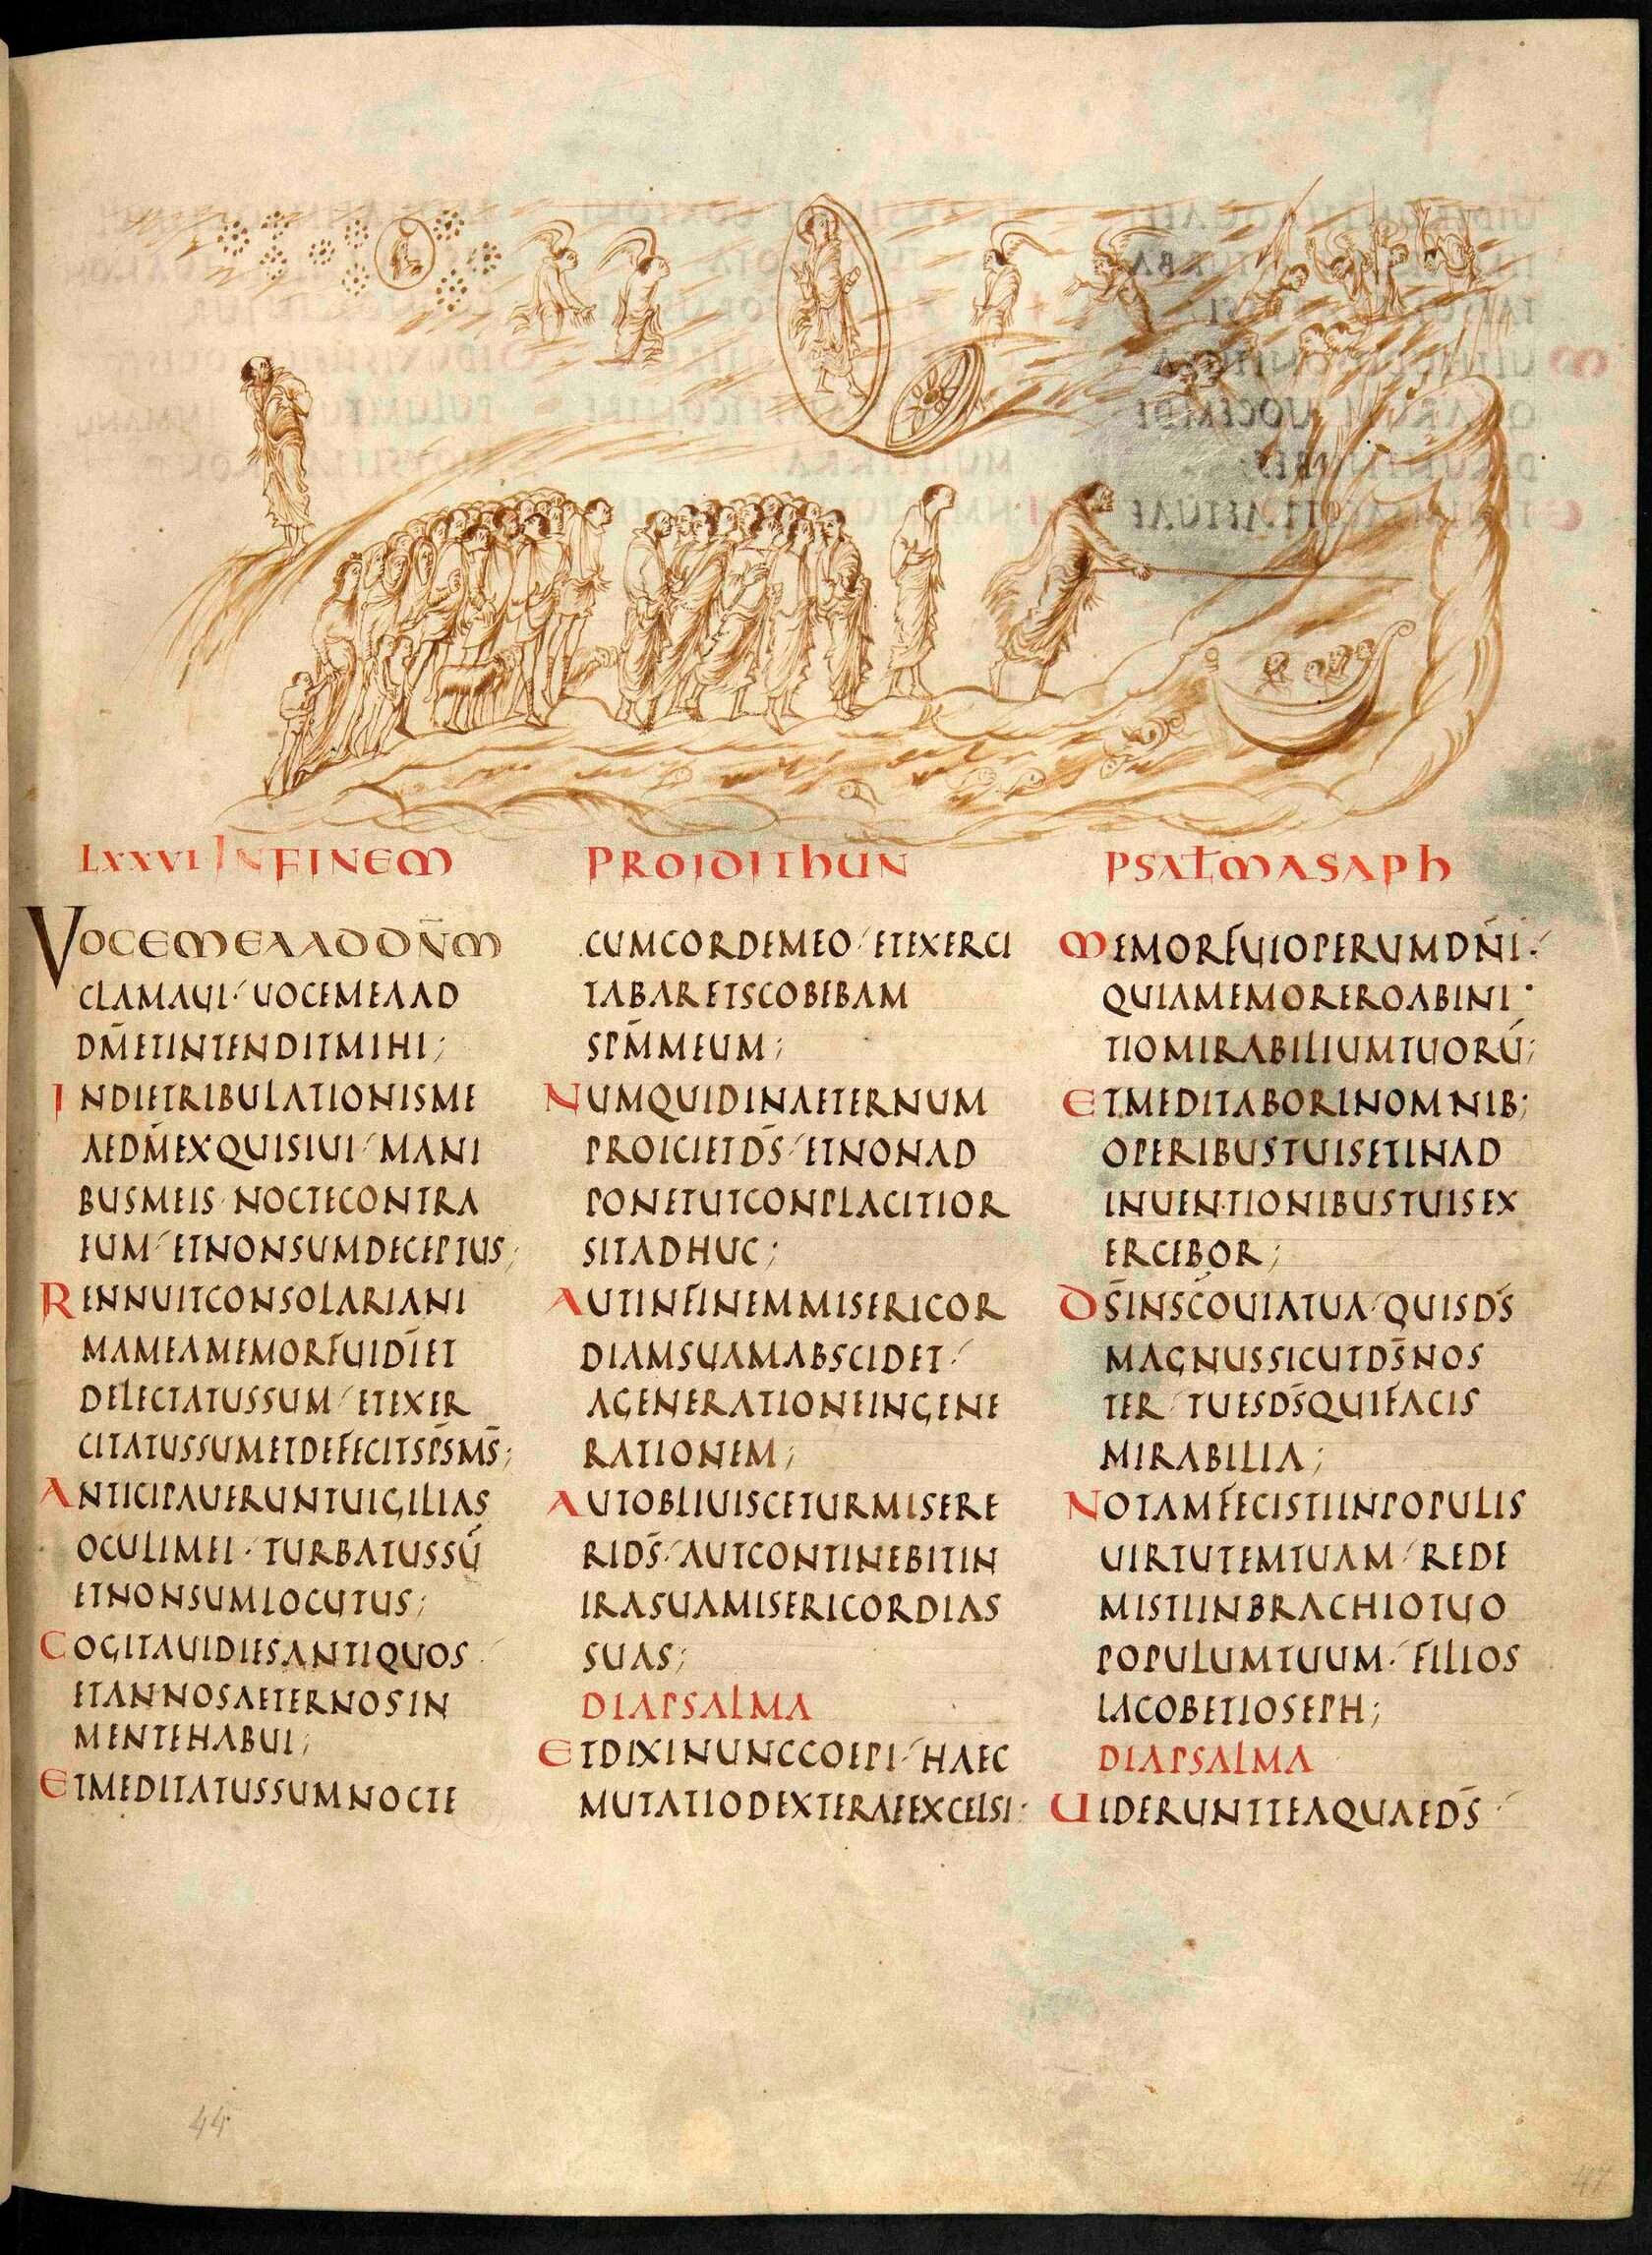 LXXVI IN FINEM PRO IDITHUN PSALM ASAPH
VOCEMEAADDN̄M
CLAMAUI· UOCEMEAAD
DM̄ETINTENDITMIHI;
INDIETRIBULATIONISME
AEDM̄EXQUISIUI· MANI
BUSMEIS NOCTECONTRA
EUM· ETNONSUMDECEPTUS;
RENNUITCONSOLARIANI
MAMEAMEMORFUIDĪET
DELECTATUSSUM· ETEXER
CITATUSSUMETDEFECITSPS̄MS̄;
ANTICIPAUERUNTUIGILIAS
OCULIMEI· TURBATUSSŪ
ETNONSUMLOCUTUS;
COGITAUIDIESANTIQUOS·
ETANNOSAETERNOSIN
MENTEHABUI;
ETMEDITATUSSUMNOCTE
CUMCORDEMEO· ETEXERCI
TABARETSCOBEBAM
SPM̄MEUM;
NUMQUIDINAETERNUM
PROICIETDS̄· ETNONAD
PONETUTCONPLACITIOR
SITADHUC;
AUTINFINEMMISERICOR
DIAMSUAMABSCIDET·
AGENERATIONEINGENE
RATIONEM;
AUTOBLIUISCETURMISERE
RIDS̄· AUTCONTINEBITIN
IRASUAMISERICORDIAS
SUAS;
DIAPSALMA
ETDIXINUNCCOEPI· HAEC
MUTATIODEXTERAEEXCELSI·
MEMORFUIOPERUMDN̄I·
QUIAMEMOREROABINI
TIOMIRABILIUMTUORŪ;
ETMEDITABORINOMNIB;
OPERIBUSTUISETINAD
INUENTIONIBUSTUISEX
ERCEBOR;
DS̄INSC̄OUIATUA· QUISDS̄
MAGNUSSICUTDS̄NOS
TER· TUESDS̄QUIFACIS
MIRABILIA;
NOTAMFECISTIINPOPULIS
UIRTUTEMTUAM· REDE
MISTIINBRACHIOTUO
POPULUMTUUM· FILIOS
IACOBETIOSEPH;
DIAPSALMA
UIDERUNTTEAQUAEDS̄·
44
47